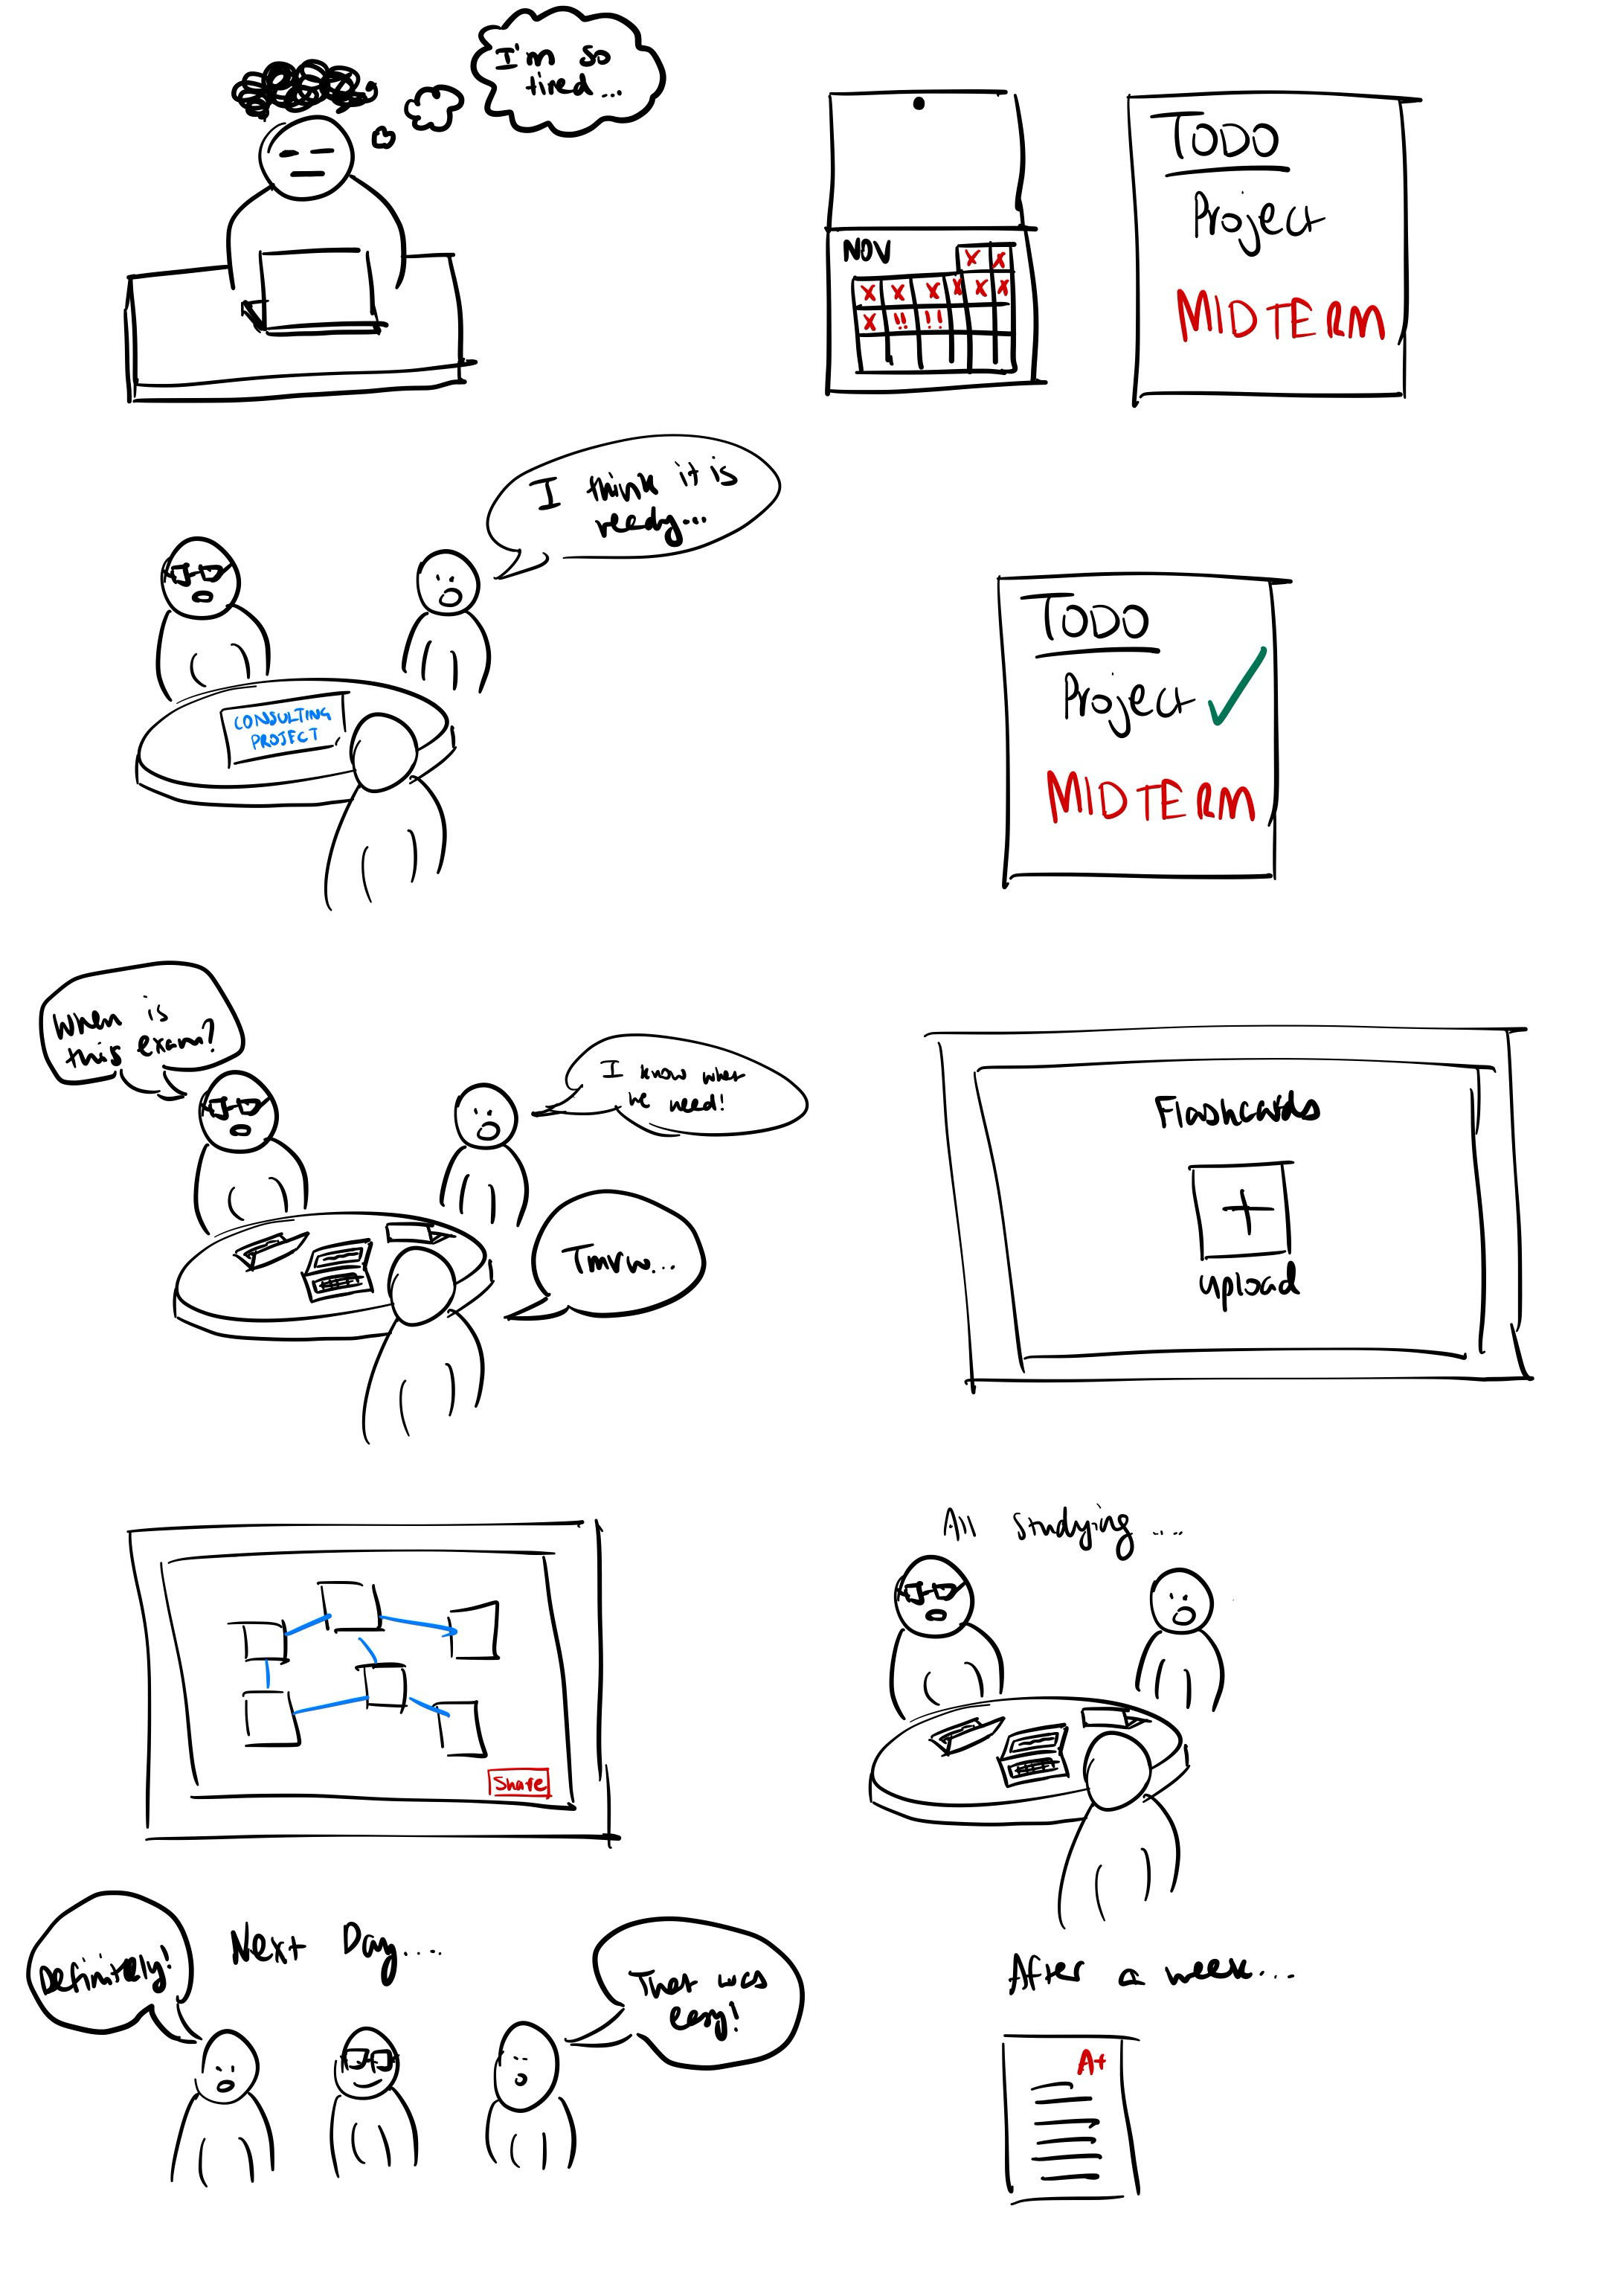 I'm so
tired...
NOV
X X
X X X X X X
X !! !!
TODO
Project
MIDTERM
I think it is
ready...
CONSULTING
PROJECT
TODO
Project ✓
MIDTERM
When is
this exam?
I know what
we need!
Tmrw...
Flashcards
+
upload
Share
All studying....
Next Day....
Definitely!
That was
easy!
After a week...
A+